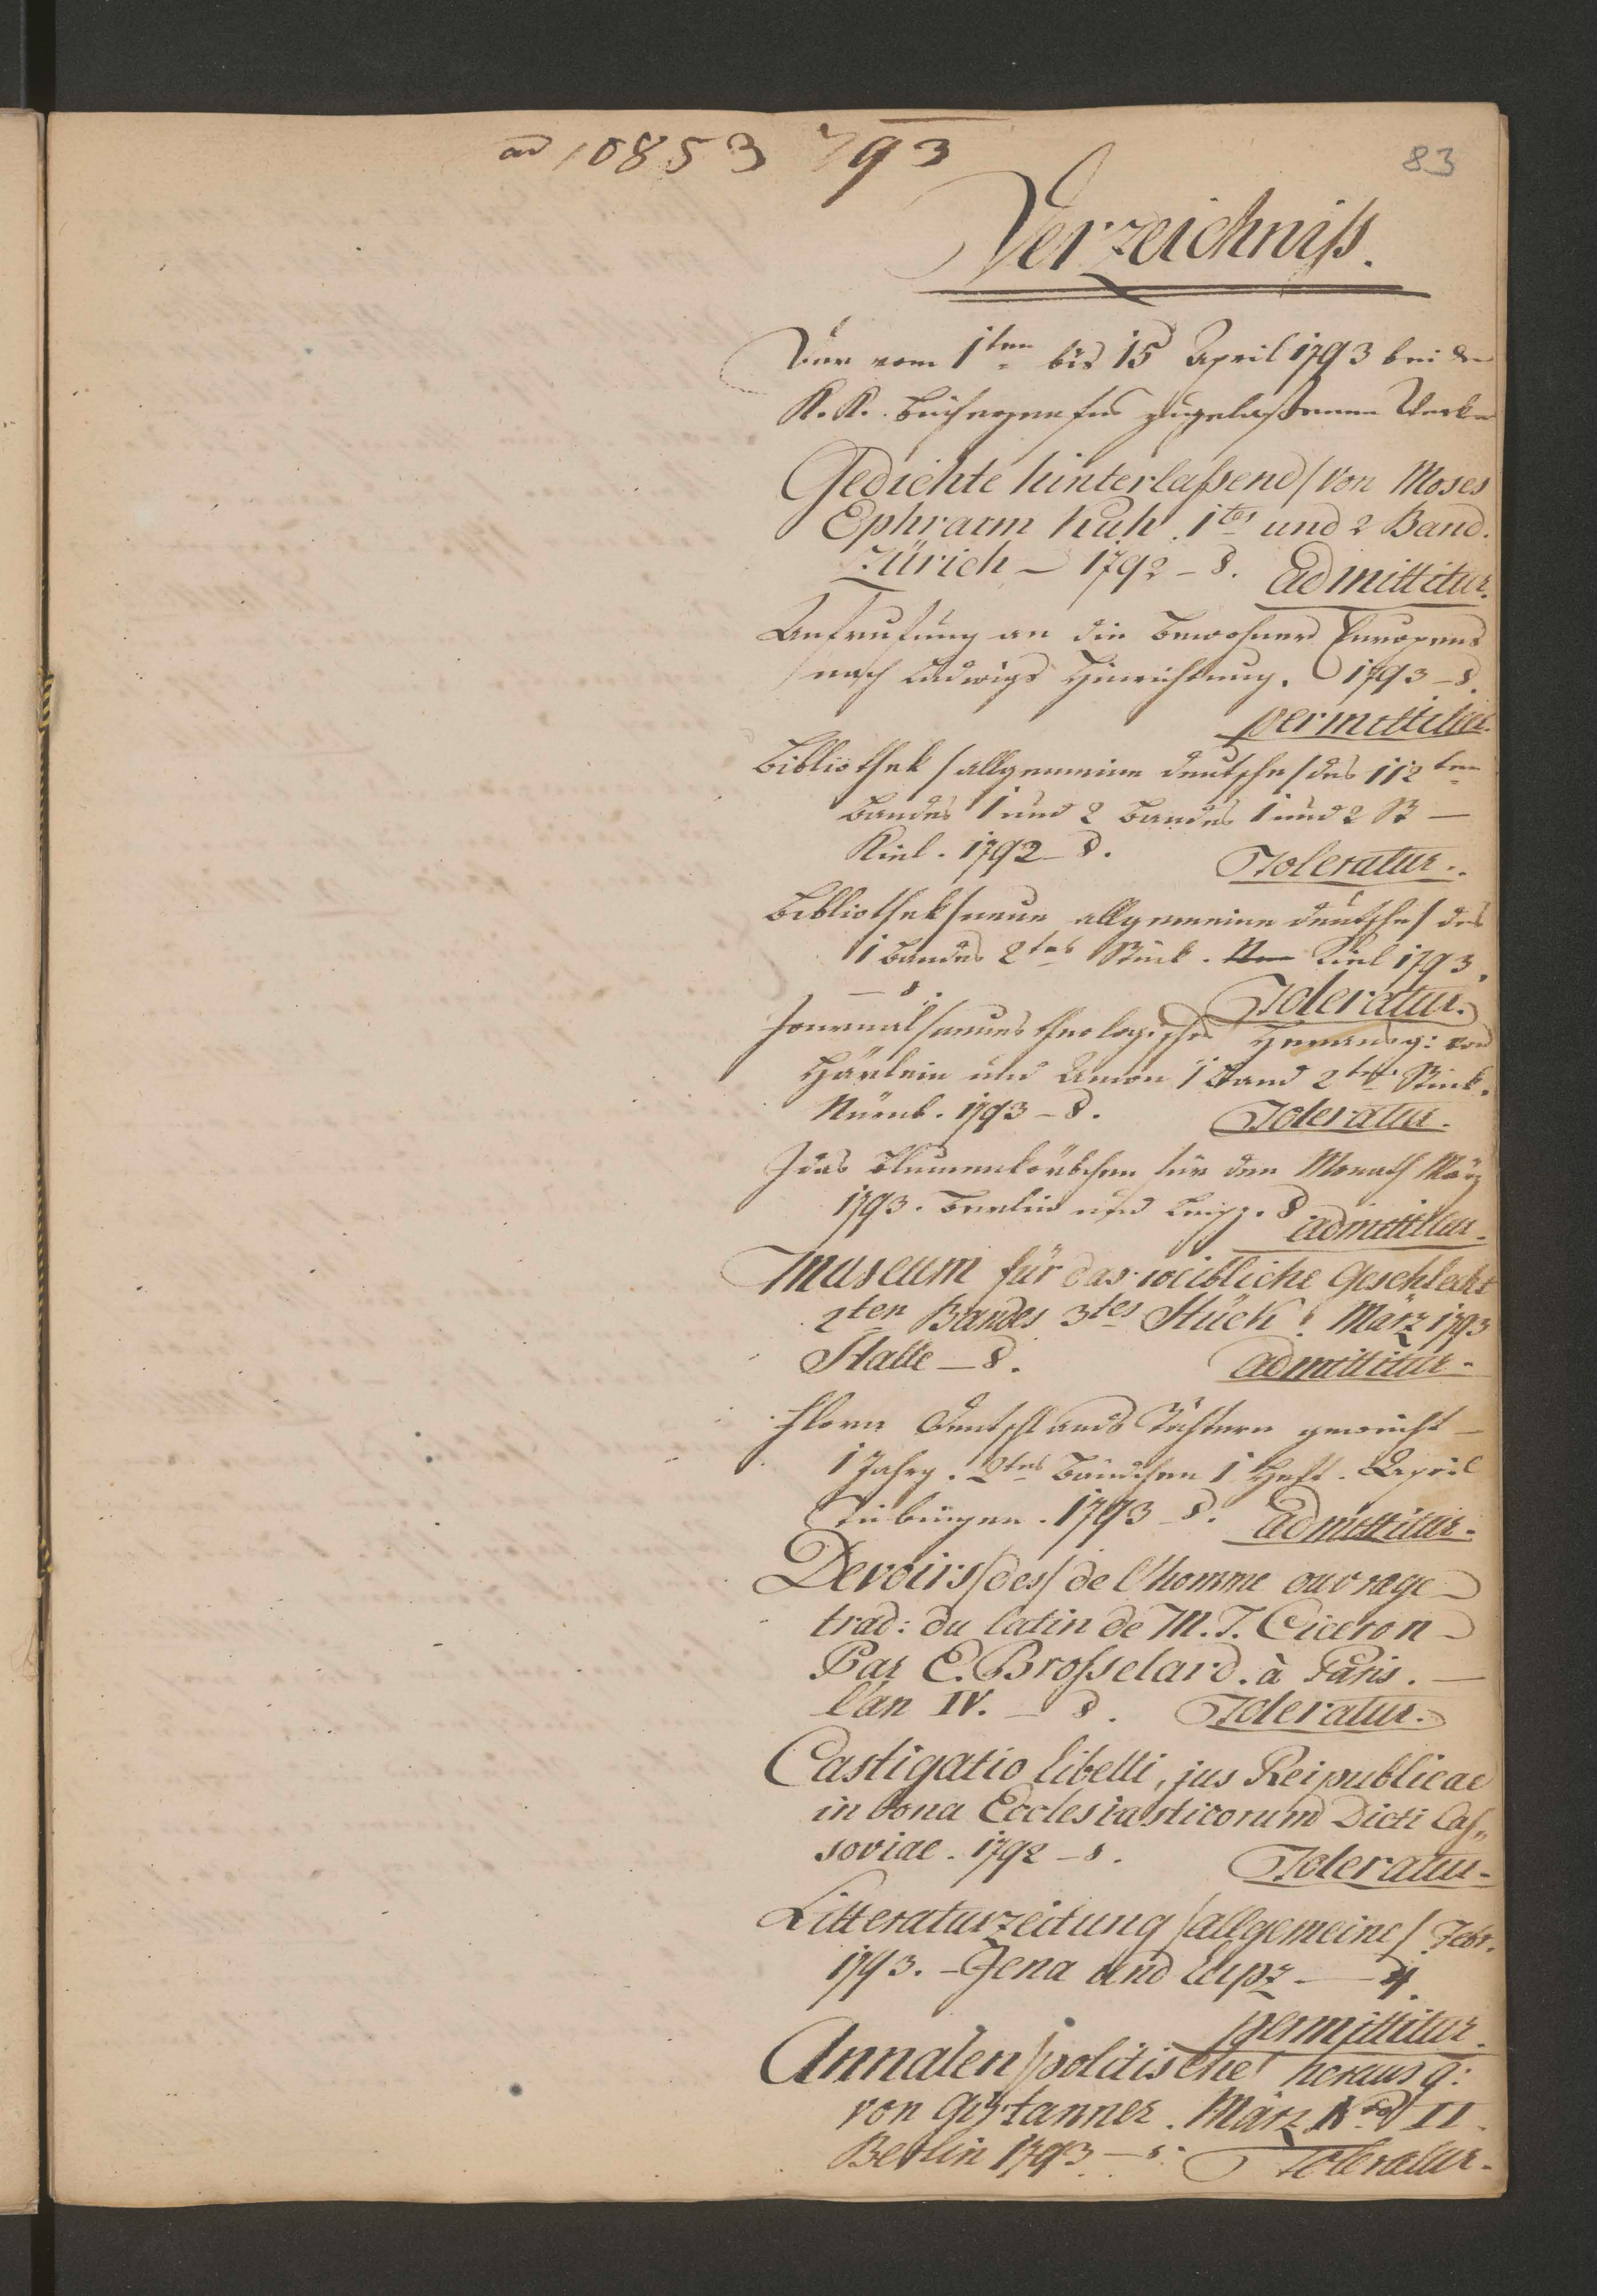 ad 10853 793
83
Verzeichniß.
Der vom 1ten bis 15 April 1793 bei der
K. K. Bücherzensur zugelaßenen Werke
Gedichte hinterlaßene / von Moses
Ephraim Kuh. 1tes und 2 Band.
Zürich – 1792 – 8. admittitur.
Aufrufung an die Bewohner Europens
nach Ludwigs Hinrichtung. 1793 – 8.
permittitur.
Bibliothek / allgemeine deutsche / des 112ten
Bandes 1 und 2 Bandes 1 und 2 St –
Kiel. 1792 – 8. Toleratur.
Bibliothek / neue allgemeine deutsche / des
1 Bandes 2tes Stück. Kiel 1793.
– 8. Toleratur.
Journal / neues theologisches herausg: von
Hänlein und Amon 1 Band 2tes Stück.
Nürnb. 1793 – 8. Toleratur.
Idas Blumenkörbchen für den Monath März
1793. Berlin und Leipz. 8 admittitur.
Museum für das weibliche Geschlecht
2ten Bandes 3tes Stück. März 1793
Halle – 8. admittitur.
Flora Deutschlands Töchtern geweiht –
1 Jahrg. 2tes Bändchen 1 Heft. April
Tübingen. 1793 – 8. admittitur.
Devoirs / des / de l'homme ouvrage
trad: du latin de M. T. Ciceron
Par E. Brosselard. à Paris. –
l'an IV. – 8. Toleratur.
Castigatio libelli, jus Reipublicae
in bona Ecclesiasticorum Dicti Cas„
soviae. 1792 – 8. Toleratur.
Litteraturzeitung / allgemeine / Febr.
1793. – Jena und Leipz – 4.
permittitur.
Annalen / politische / herausg:
von Girtanner. März Nro II.
Berlin 1793 – 8. Toleratur.